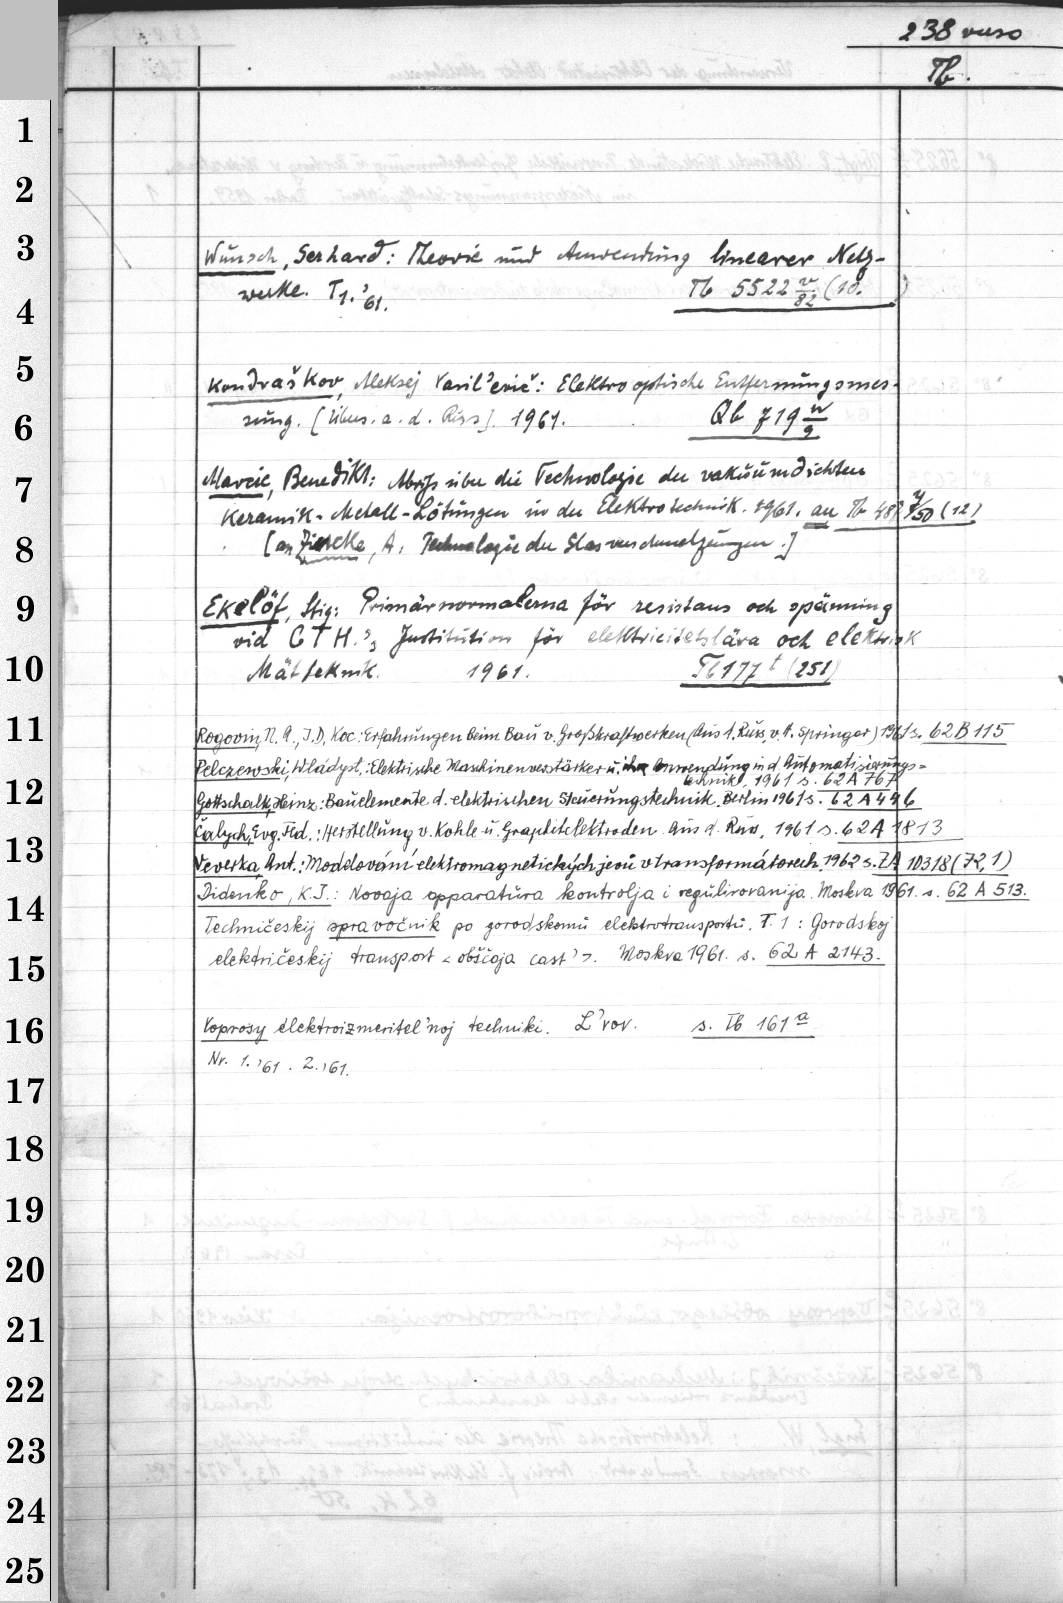 238 verso
Tb.
1
2
3
Wunsch, Gerhard: Theorie und Anwendung linearer Netz-
werke. T1. '61. Tb 5522 w/82 (10. )
4
5
Kondraškov, Aleksej Vasil'evič: Elektrooptische Entfernungsmes-
sung. [Übers. a. d. Russ]. 1961. Qb 719 w/9
6
7
Marcic, Benedikt: Abriss über die Technologie der vakuumdichten
Keramik-Metall-Lötungen in der Elektrotechnik. 1961. an Tb 487 y/50 (12)
8
[an , A. Technologie der Glasverschmelzungen.]
9
Ekelöf, Stig: Primärnormalerna för resistans och spänning
vid CTH.'s Institution för elektricitetslära och elektrisk
10
Mätteknik. 1961. Tb 177 t (251)
11
Rogovin, N. A., I. D. Koc: Erfahrungen beim Bau v. Großkraftwerken (Aus d. Russ. v. A. Springer) 1961 s. 62 B 115
Pelczewski, Władysł.: Elektrische Maschinenverstärker u. ihre Anwendung in d. Automatisierungs-
technik, 1961 s. 62 A 767
12
Gottschalk, Heinz: Bauelemente d. elektrischen Steuerungstechnik. Berlin 1961 s. 62 A 496
Čalych, Evg. Fed.: Herstellung v. Kohle- u. Graphitelektroden. Aus d. Russ. 1961 s. 62 A 1813
13
Veverka, Ant.: Modelování elektromagnetických jevů v transformátorech. 1962 s. ZA 10318 (72,1)
14
Didenko, K. I.: Novaja apparatura kontrolja i regulirovanija. Moskva 1961. s. 62 A 513.
Techničeskij spravočnik po gorodskomu elektrotransportu. T. 1: Gorodskoj
15
električeskij transport <obščaja cast'>. Moskva 1961. s. 62 A 2143.
16
Voprosy elektroizmeritel'noj techniki. L'vov. s. Tb 161 a
Nr. 1.'61. 2.'61.
17
18
19
20
21
22
23
24
25